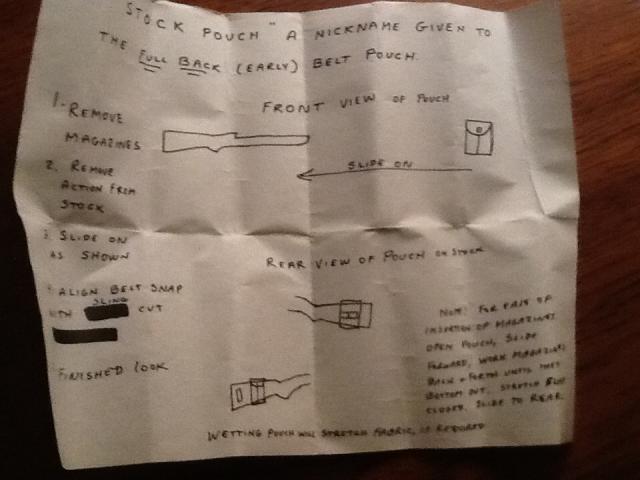 STOCK POUCH " A NICKNAME GIVEN TO
THE FULL BACK (EARLY) BELT POUCH.
1. REMOVE
MAGAZINES
FRONT VIEW OF POUCH
2. REMOVE
ACTION FROM
STOCK
SLIDE ON
3. SLIDE ON
AS SHOWN
REAR VIEW OF POUCH ON STOCK
ALIGN BELT SNAP
SLING
WITH CUT
FINISHED LOOK
NOTE: FOR EASE OF
INSERTION OF MAGAZINES
OPEN POUCH, SLIDE
FORWARD, WORK MAGAZINES
BACK & FORTH UNTIL THEY
BOTTOM OUT. STRETCH
CLOSED. SLIDE TO REAR.
WETTING POUCH WILL STRETCH FABRIC, IF REQUIRED